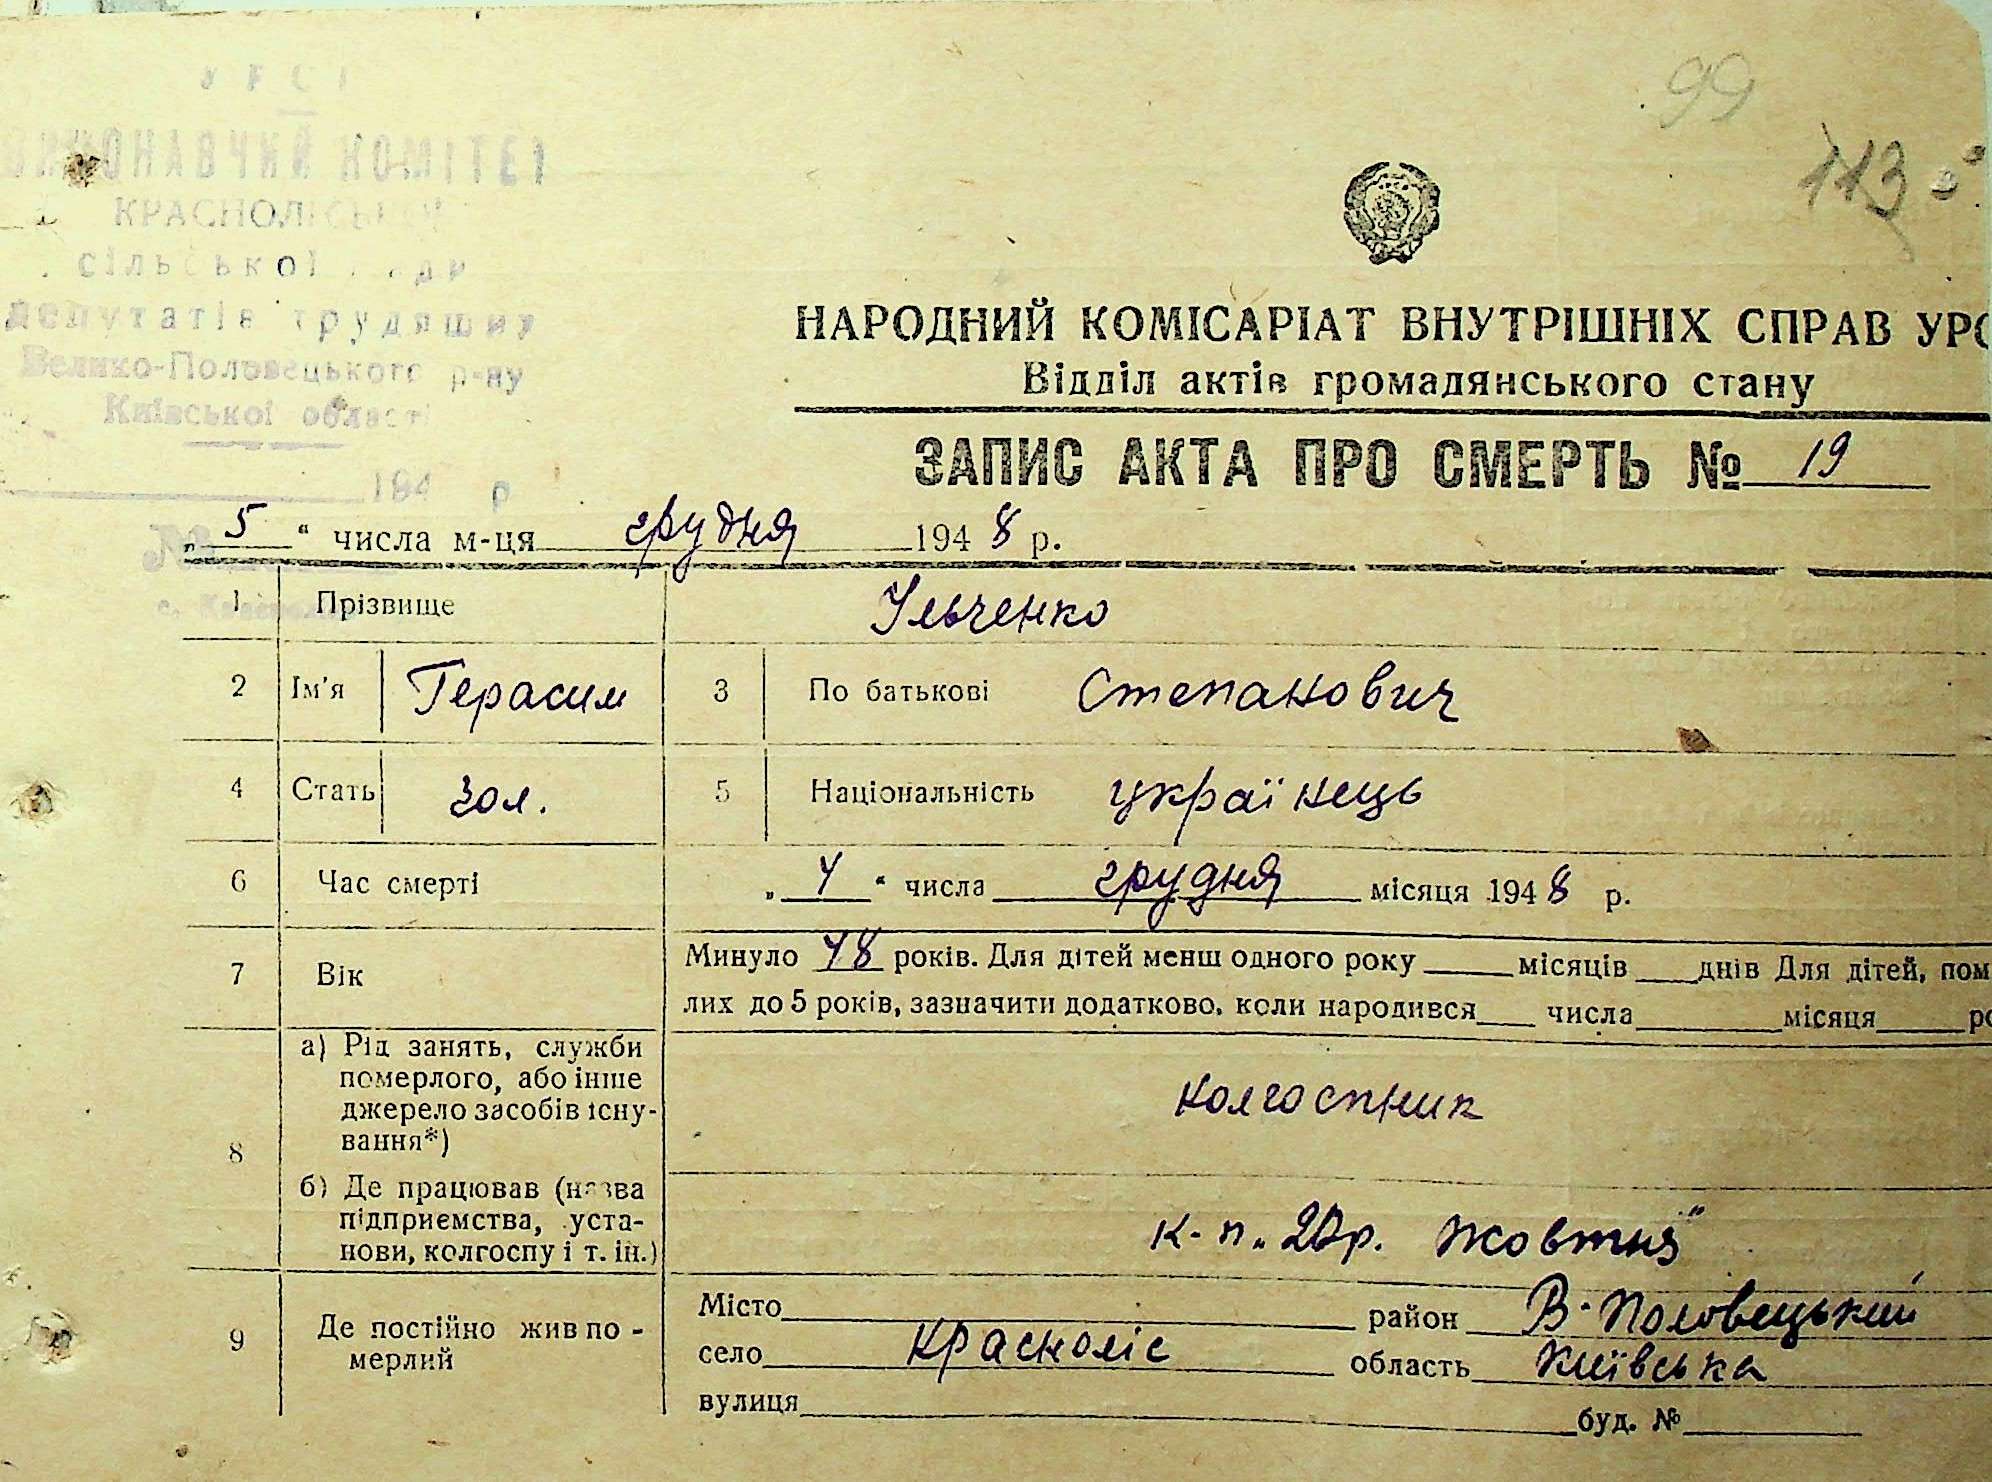 99
113
ВИКОНАВЧИЙ КОМІТЕТ
КРАСНОЛІСЬКОЇ
сільської ради
депутатів трудящих
Велико-Половецького р-ну
Київської області
194 р
№
НАРОДНИЙ КОМІСАРІАТ ВНУТРІШНІХ СПРАВ УРС
Відділ актів громадянського стану
ЗАПИС АКТА ПРО СМЕРТЬ № 19
„ 5 “ числа м-ця грудня 1948 р.
1 Прізвище Ульченко
2 Ім'я Герасим 3 По батькові Степанович
4 Стать чол. 5 Національність українець
6 Час смерті „ 4 “ числа грудня місяця 1948 р.
7 Вік Минуло 48 років. Для дітей менш одного року місяців днів Для дітей, пом
лих до 5 років, зазначити додатково, коли народився числа місяця ро
8 а) Рід занять, служби
померлого, або інше
джерело засобів існу-
вання*)
колгоспник
б) Де працював (назва
підприємства, уста-
нови, колгоспу і т. ін.)
к-п „20 р. Жовтня"
9 Де постійно жив по-
мерлий
Місто район В-Половецький
село Красноліс область Київська
вулиця буд. №